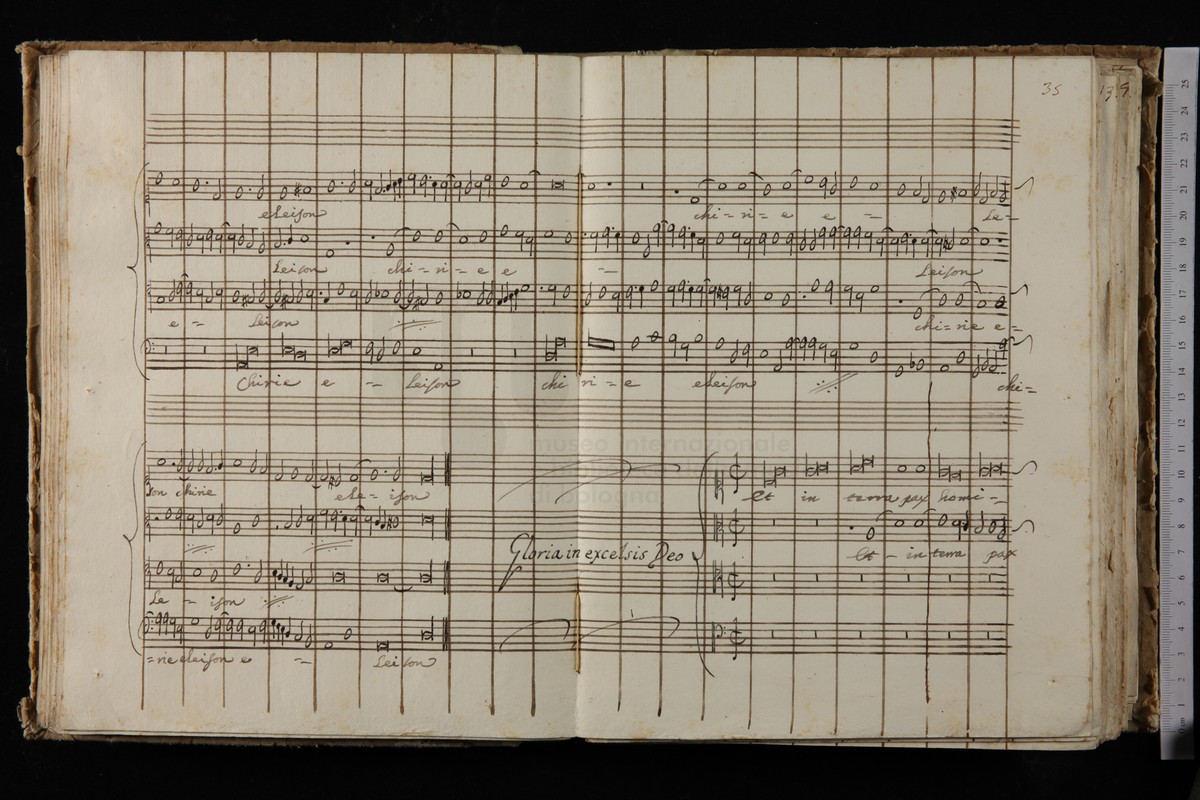 35
139.
eleison
chi = ri = e e =
Le =
Leison chi = ri = e e =
Leison
e = Leison
chi = rie e =
Chirie e = Leison chi ri = e eleison
chi =
museo internazionale
di bologna
son chirie ele = ison
Et in terra pax homi =
Gloria in excelsis Deo
Et = in terra pax
Le = ison
= rie eleison e = Leison
25
24
23
22
21
20
19
18
17
16
15
14
13
12
11
10
9
8
7
6
5
4
3
2
1